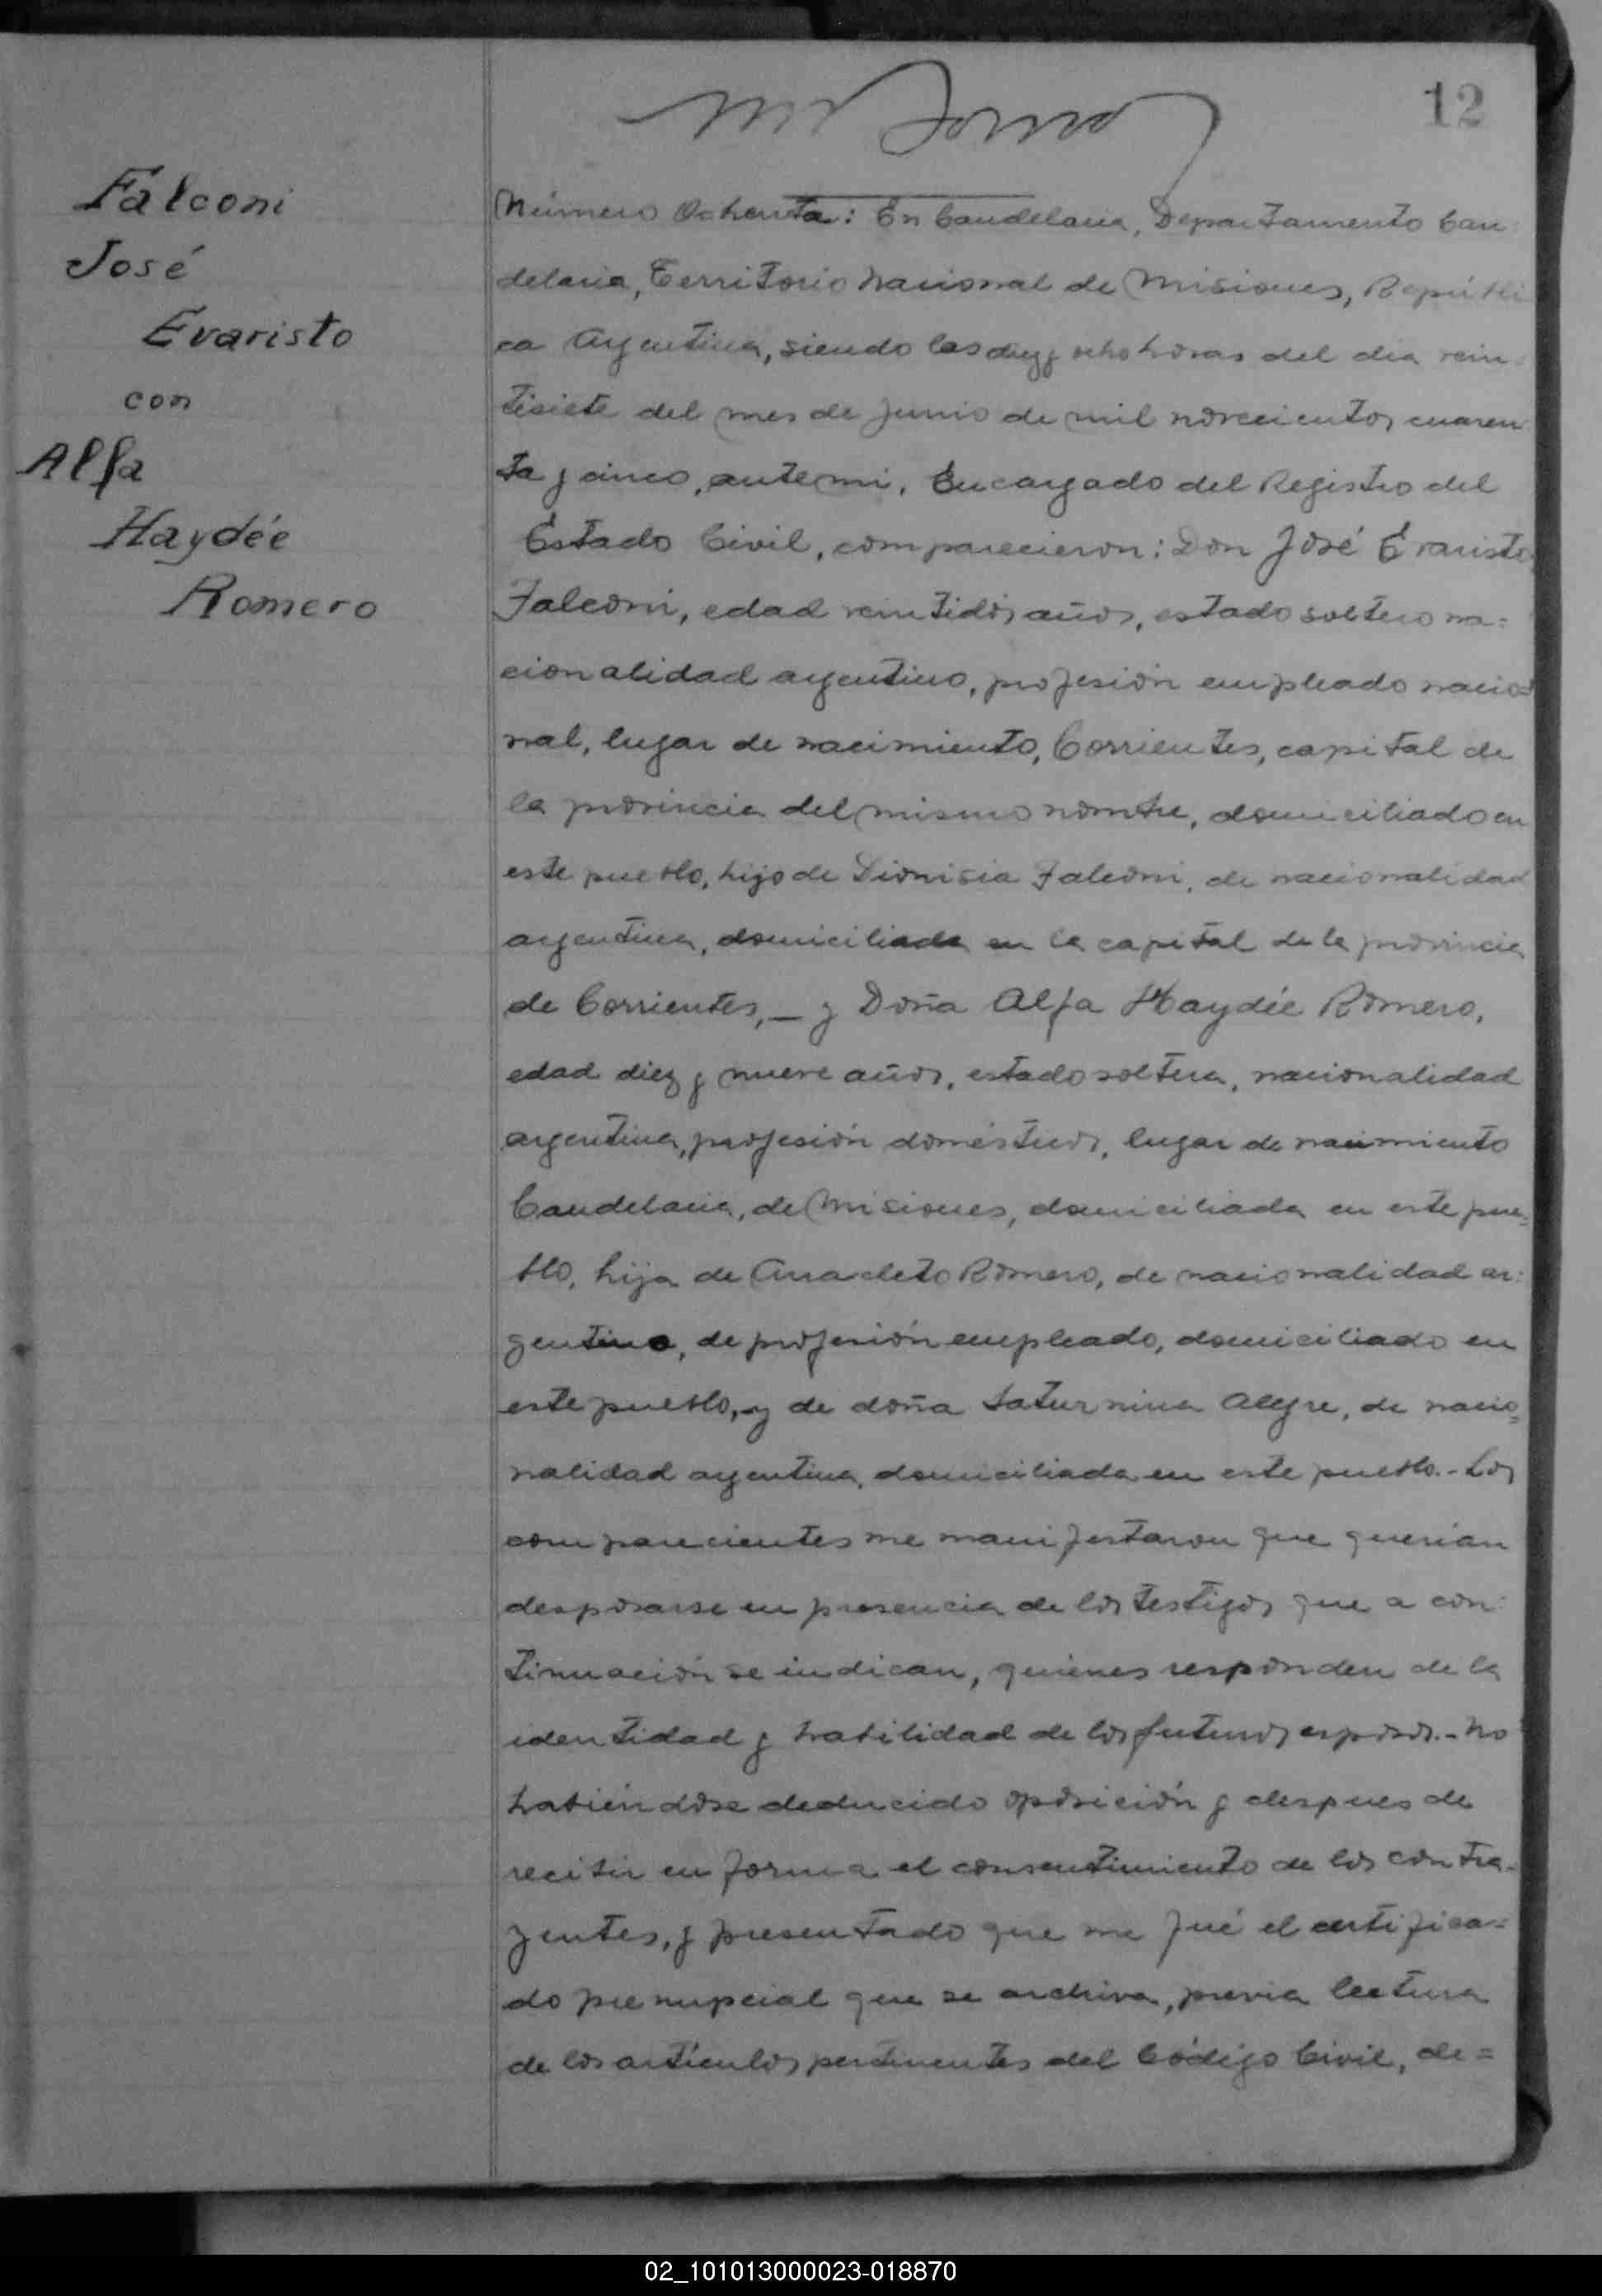 12
Falconi
José
Evaristo
con
Alfa
Haydée
Romero
Número Ochenta: En Candelaria, Departamento Can-
delaria, Territorio Nacional de Misiones, Repúbli
ca Argentina, siendo las diez y ocho horas del dia vein-
tisiete del mes de Junio de mil novecientos cuaren-
ta y cinco, ante mi, Encargado del Registro del
Estado Civil, comparecieron: Don José Evaristo
Falconi, edad veintidós años, estado soltero na=
cionalidad argentino, profesión empleado nacio=
nal, lugar de nacimiento, Corrientes, capital de
la provincia del mismo nombre, domiciliado en
este pueblo, hijo de Dionisia Falconi, de nacionalidad
argentina, domiciliada en la capital de la provincia
de Corrientes, _ y Doña Alfa Haydée Romero,
edad diez y nueve años, estado soltera, nacionalidad
argentina, profesión domésticos, lugar de nacimiento
Candelaria, de Misiones, domiciliada en este pue=
blo, hija de Anacleto Romero, de nacionalidad ar=
gentino, de profesión empleado, domiciliado en
este pueblo, y de doña Saturnina Alegre, de nacio=
nalidad argentina, domiciliada en este pueblo.- Los
comparecientes me manifestaron que querían
desposarse en presencia de los testigos que a con=
tinuación se indican, quienes responden de la
identidad y habilidad de los futuros esposos.- No
habiéndose deducido oposición y despues de
recibir en forma el consentimiento de los contra-
yentes, y presentado que me fué el certifica=
do prenupcial que se archiva, previa lectura
de los artículos pertinentes del Código Civil, de=
02_101013000023-018870